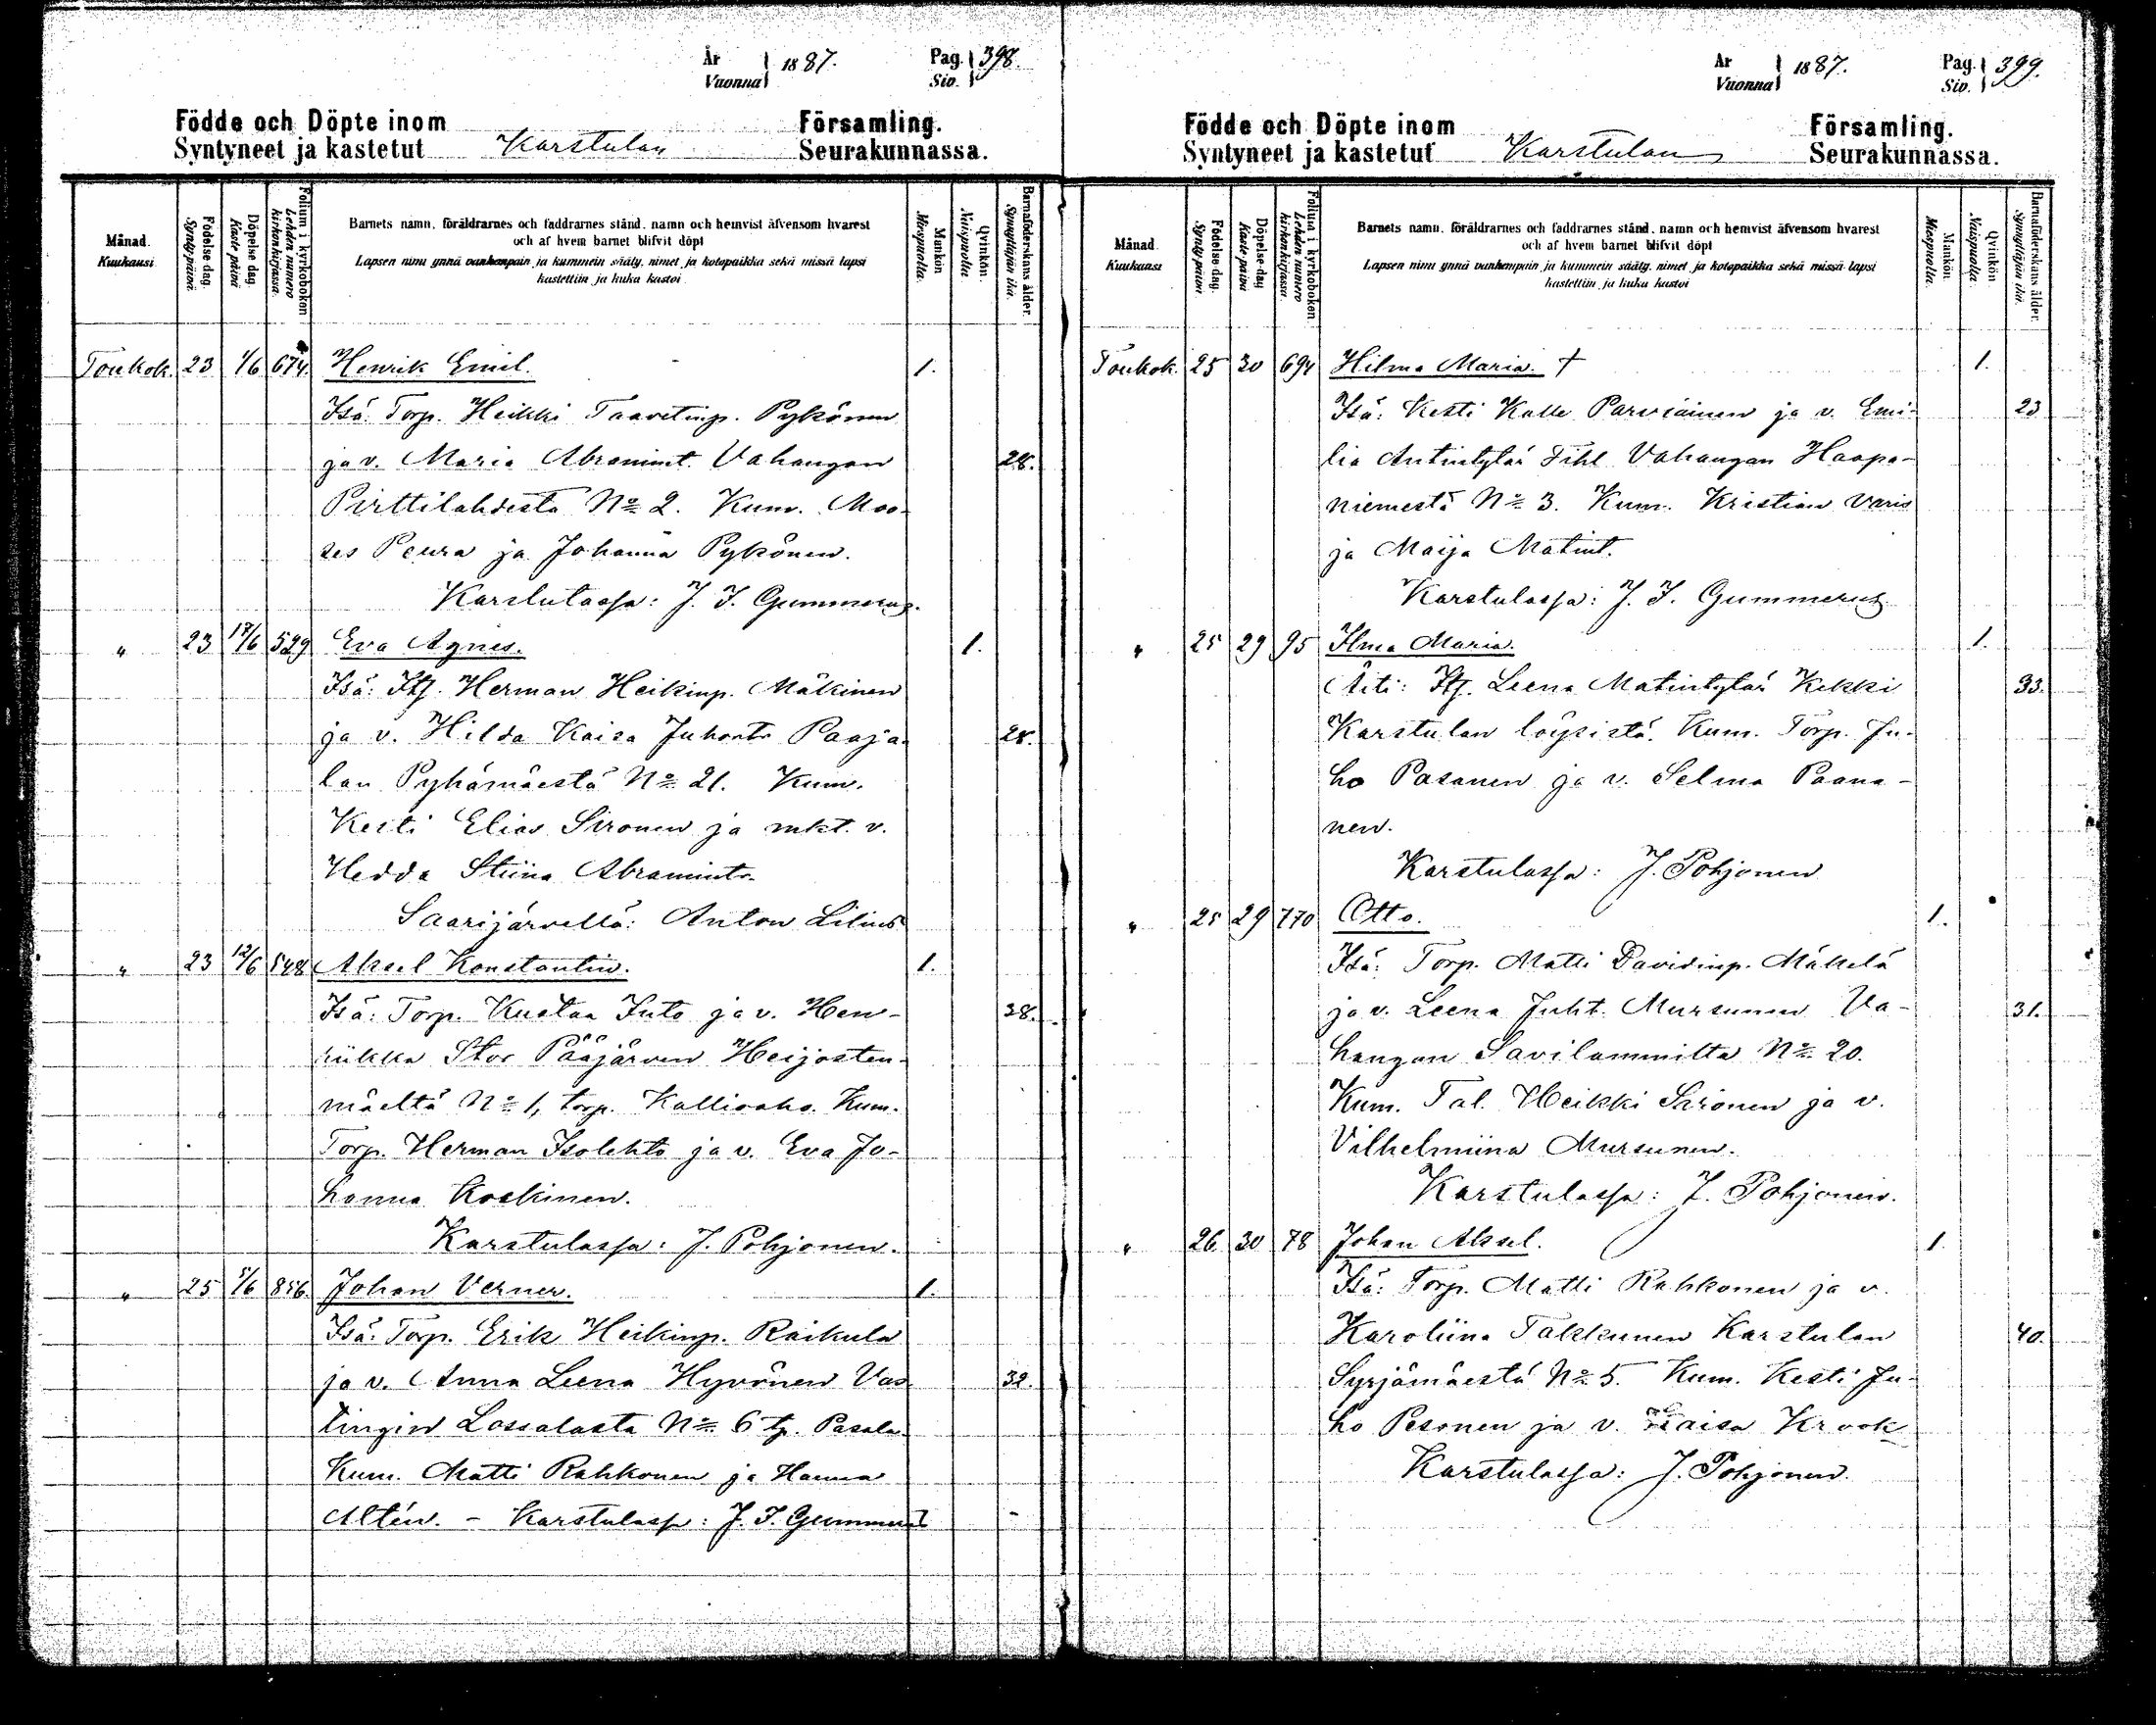 År
Vuonna 1887.
Pag.
Siv. 398.
Födde och Döpte inom Församling.
Syntyneet ja kastetut Karstulan Seurakunnassa.
Månad.
Kuukausi.
Födelse dag.
Synty päivä
Döpelse dag.
Kaste päivä
Folium i kyrkoboken
Lehden numero
kirkonkirjassa.
Barnets namn, föräldrarnes och faddrarnes stånd, namn och hemvist äfvensom hvarest
och af hvem barnet blifvit döpt
Lapsen nimi ynnä vanhempain ja kummein sääty, nimet ja kotopaikka sekä missä lapsi
kastettiin ja kuka kastoi
Mankön
Miespuolia.
Qvinkön.
Vaispuolia.
Barnaföderskans ålder.
Synnyttäjän ikä.
Toukok. 23 1/6 674. Henrik Emil. 1.
Isä: Torp. Heikki Taavetinp. Pykönen
ja v. Maria Abramint. Vahangan 28.
Pirttilahdesta No 2. Kum. Moo-
ses Peura ja Johanna Pykönen.
Karstulassa: J. I. Gummerus.
" 23 17/6 529 Eva Agnes. 1.
Isä: Itj. Herman Heikinp. Mäkinen
ja v. Hilda Kaisa Juhontr Paaja- 28.
lan Pyhämäestä No 21. Kum.
Kesti Elias Sironen ja mkt. v.
Hedda Stiina Abramintr.
Saarijärvellä: Anton Lilius
" 23 12/6 548 Aksel Konstantin. 1.
Isä: Torp. Kustaa Juto ja v. Hen- 38.
riikka Stor Pääjärven Heijosten-
mäeltä No 1, torp. Kallioaho. Kum.
Torp. Herman Isolehto ja v. Eva Jo-
hanna Koskinen.
Karstulassa: J. Pohjonen.
" 25 5/6 856. Johan Verner. 1.
Isä: Torp. Erik Heikinp. Raikula
ja v. Anna Leena Hyvönen Vas- 32.
tingin Lossalasta No 6 tp. Pasala.
Kum. Matti Rahkonen ja Hanna
Altén. - Karstulass: J. I. Gummerus
År
Vuonna 1887.
Pag.
Siv. 399.
Födde och Döpte inom Församling.
Syntyneet ja kastetut Karstulan Seurakunnassa.
Månad.
Kuukausi
Födelse dag.
Synty päivä
Döpelse dag
Kaste päivä
Folium i kyrkoboken
Lehden numero
kirkonkirjassa.
Barnets namn, föräldrarnes och faddrarnes stånd, namn och hemvist äfvensom hvarest
och af hvem barnet blifvit döpt
Lapsen nimi ynnä vanhempain ja kummein sääty, nimet ja kotopaikka sekä missä lapsi
kastettiin ja kuka kastoi
Mankön.
Miespuolia.
Qvinkön
Vaispuolia.
Barnaföderskans ålder.
Synnyttäjän ikä.
Toukok. 25 30 694 Hilma Maria. † 1.
Isä: Kesti Kalle Parviainen ja v. Emi- 23
lia Antintytär Fihl Vahangan Haapa-
niemestä No 3. Kum. Kristian Varis
ja Maija Matint.
Karstulassa: J. I. Gummerus
" 25 29 95 Ilma Maria. 1.
Äiti: Itj. Leena Matintytär Kekki 33.
Karstulan löysistä. Kum. Torp. Ju-
ho Pasanen ja v. Selma Paana-
nen.
Karstulassa: J. Pohjonen
" 25 29 770 Otto. 1.
Isä: Torp. Matti Davidinp. Mäkelä
ja v. Leena Juht. Mursunen Va- 31.
hangan Savilammilta No 20.
Kum. Tal. Heikki Sironen ja v.
Vilhelmiina Mursunen.
Karstulassa: J. Pohjonen.
" 26. 30 78 Johan Aksel. 1
Isä: Torp. Matti Rahkonen ja v.
Karoliina Takkunen Karstulan 40.
Syrjämäestä No 5. Kum. Kesti Ju-
ho Pesonen ja v. Kaisa Krook
Karstulassa: J. Pohjonen.